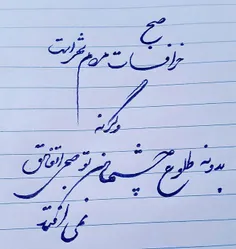 صبح
خرافات مردم شهر است
وگرنه
بدونه طلوع چشمانت تو صبحی اتفاق
نمی افتد